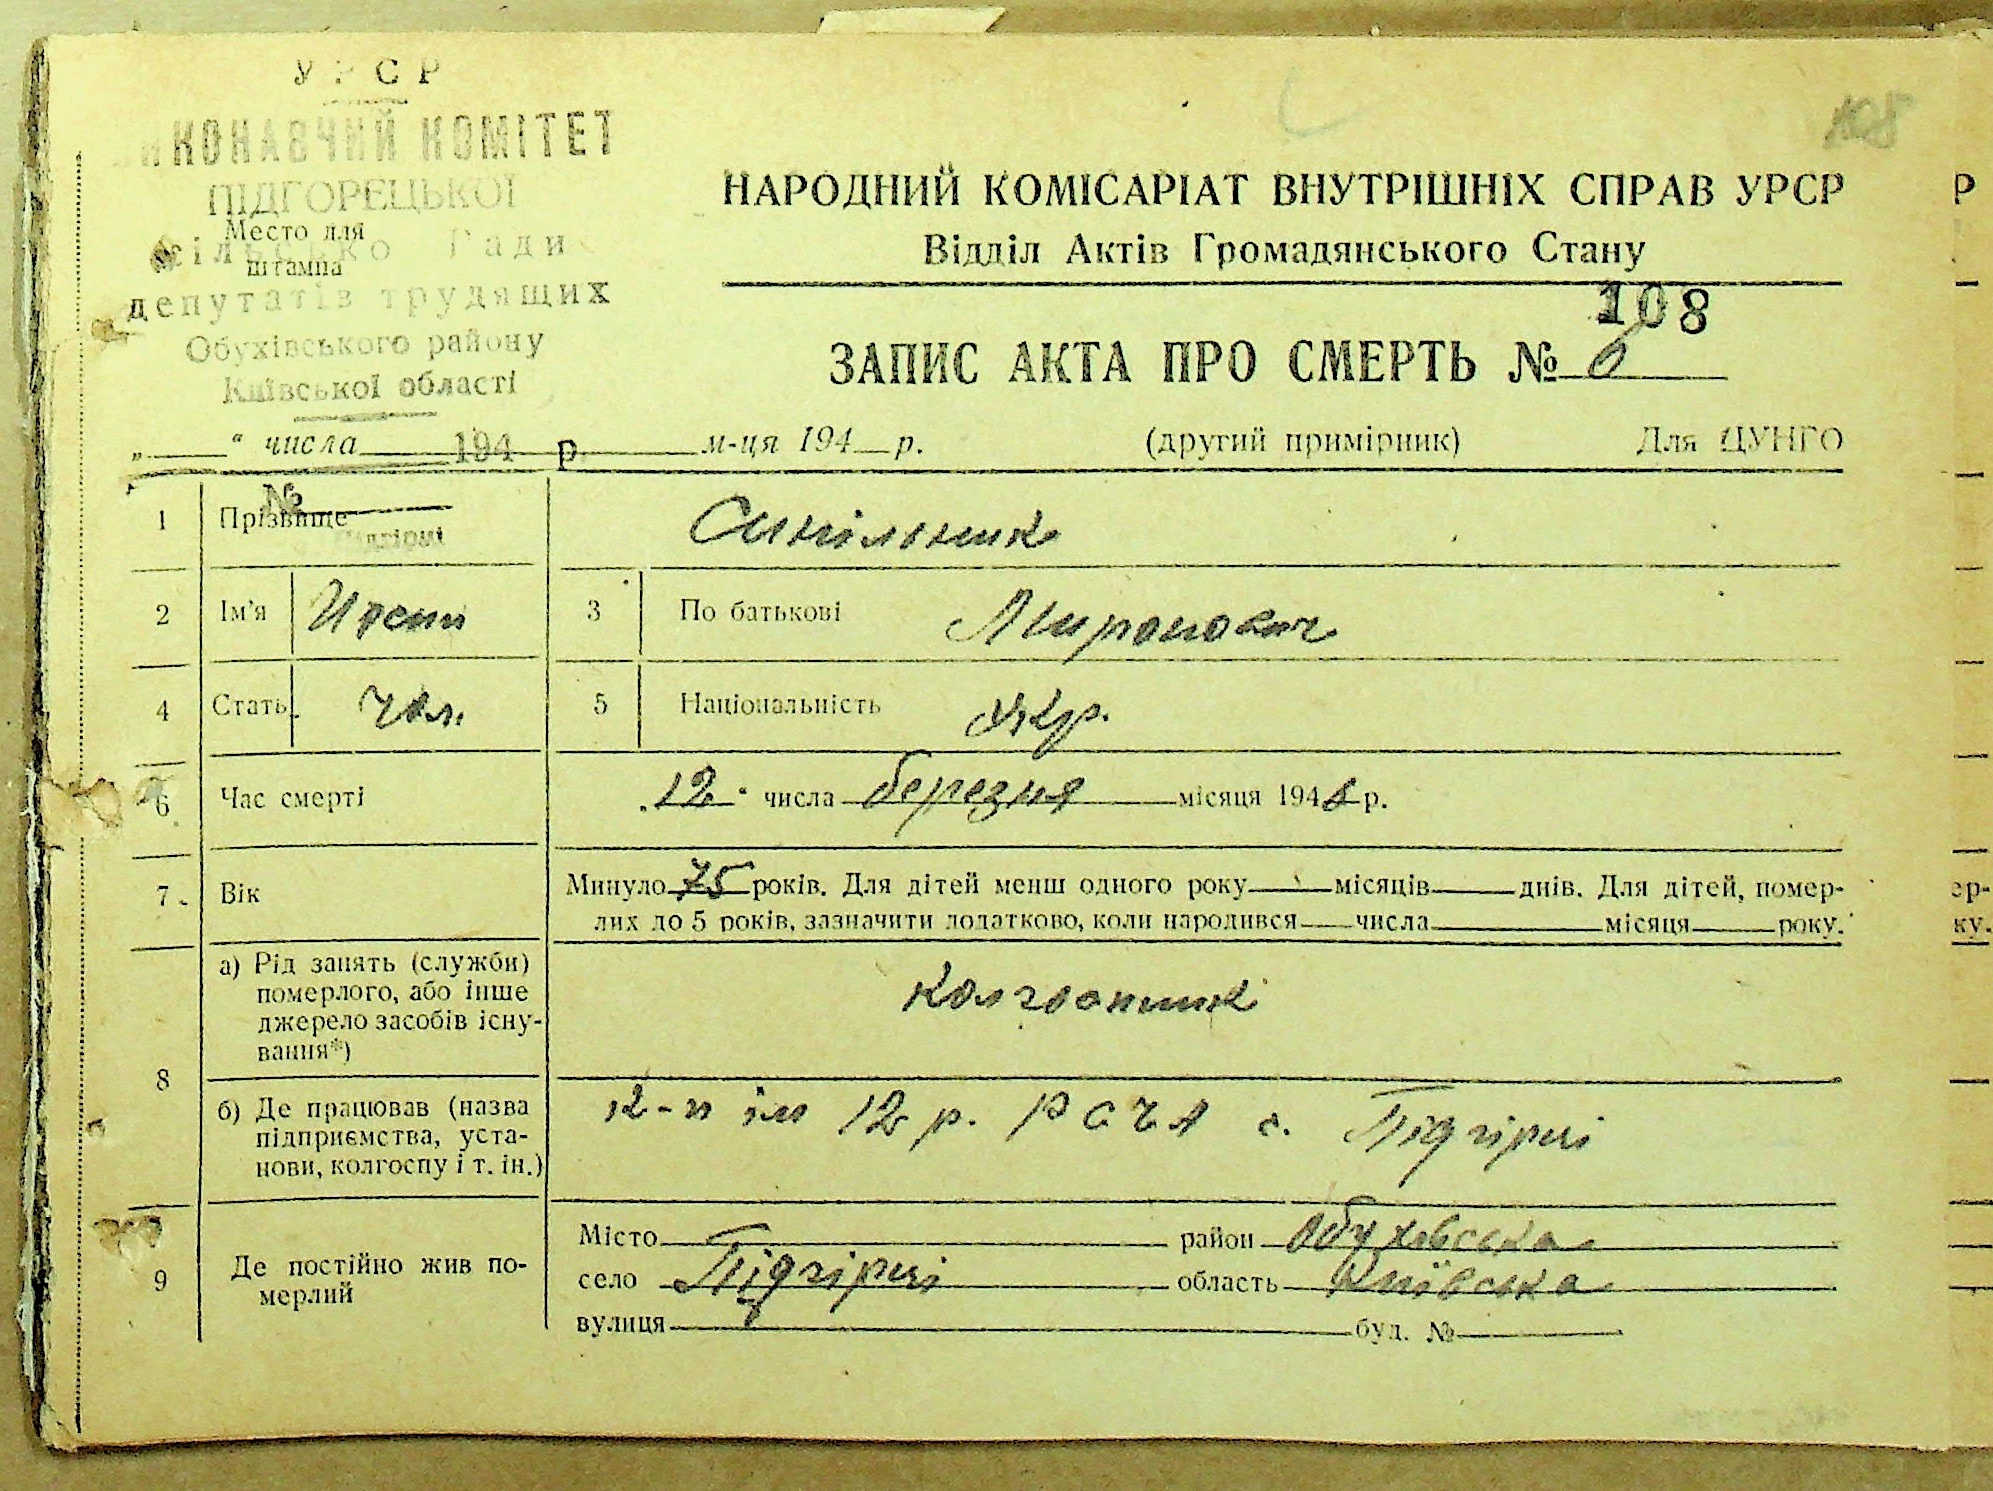 УРСР
ВИКОНАВЧИЙ КОМІТЕТ
ПІДГОРЕЦЬКОЇ
Место для
штампа
Сільсько Ради
депутатів трудящих
Обухівського району
Київської області
108
НАРОДНИЙ КОМІСАРІАТ ВНУТРІШНІХ СПРАВ УРСР
Відділ Актів Громадянського Стану
108
ЗАПИС АКТА ПРО СМЕРТЬ № 6
„ “ числа 194 р. м-ця 194 р. (другий примірник) Для ЦУНГО
№
1 Прізвище
2 Ім'я 3 По батькові Миронович
4 Стать Чол. 5 Національність Укр.
6 Час смерті „12“ числа березня місяця 194 р.
7 Вік Минуло 75 років. Для дітей менш одного року місяців днів. Для дітей, помер-
лих до 5 років, зазначити додатково, коли народився числа місяця року.
8 а) Рід занять (служби)
померлого, або інше
джерело засобів існу-
вання*)
колгоспник
б) Де працював (назва
підприємства, уста-
нови, колгоспу і т. ін.)
к-п ім 12 р. РСЧА с. Підгірці
9 Де постійно жив по-
мерлий
Місто район Обухівська
село Підгірці область Київська
вулиця буд. №